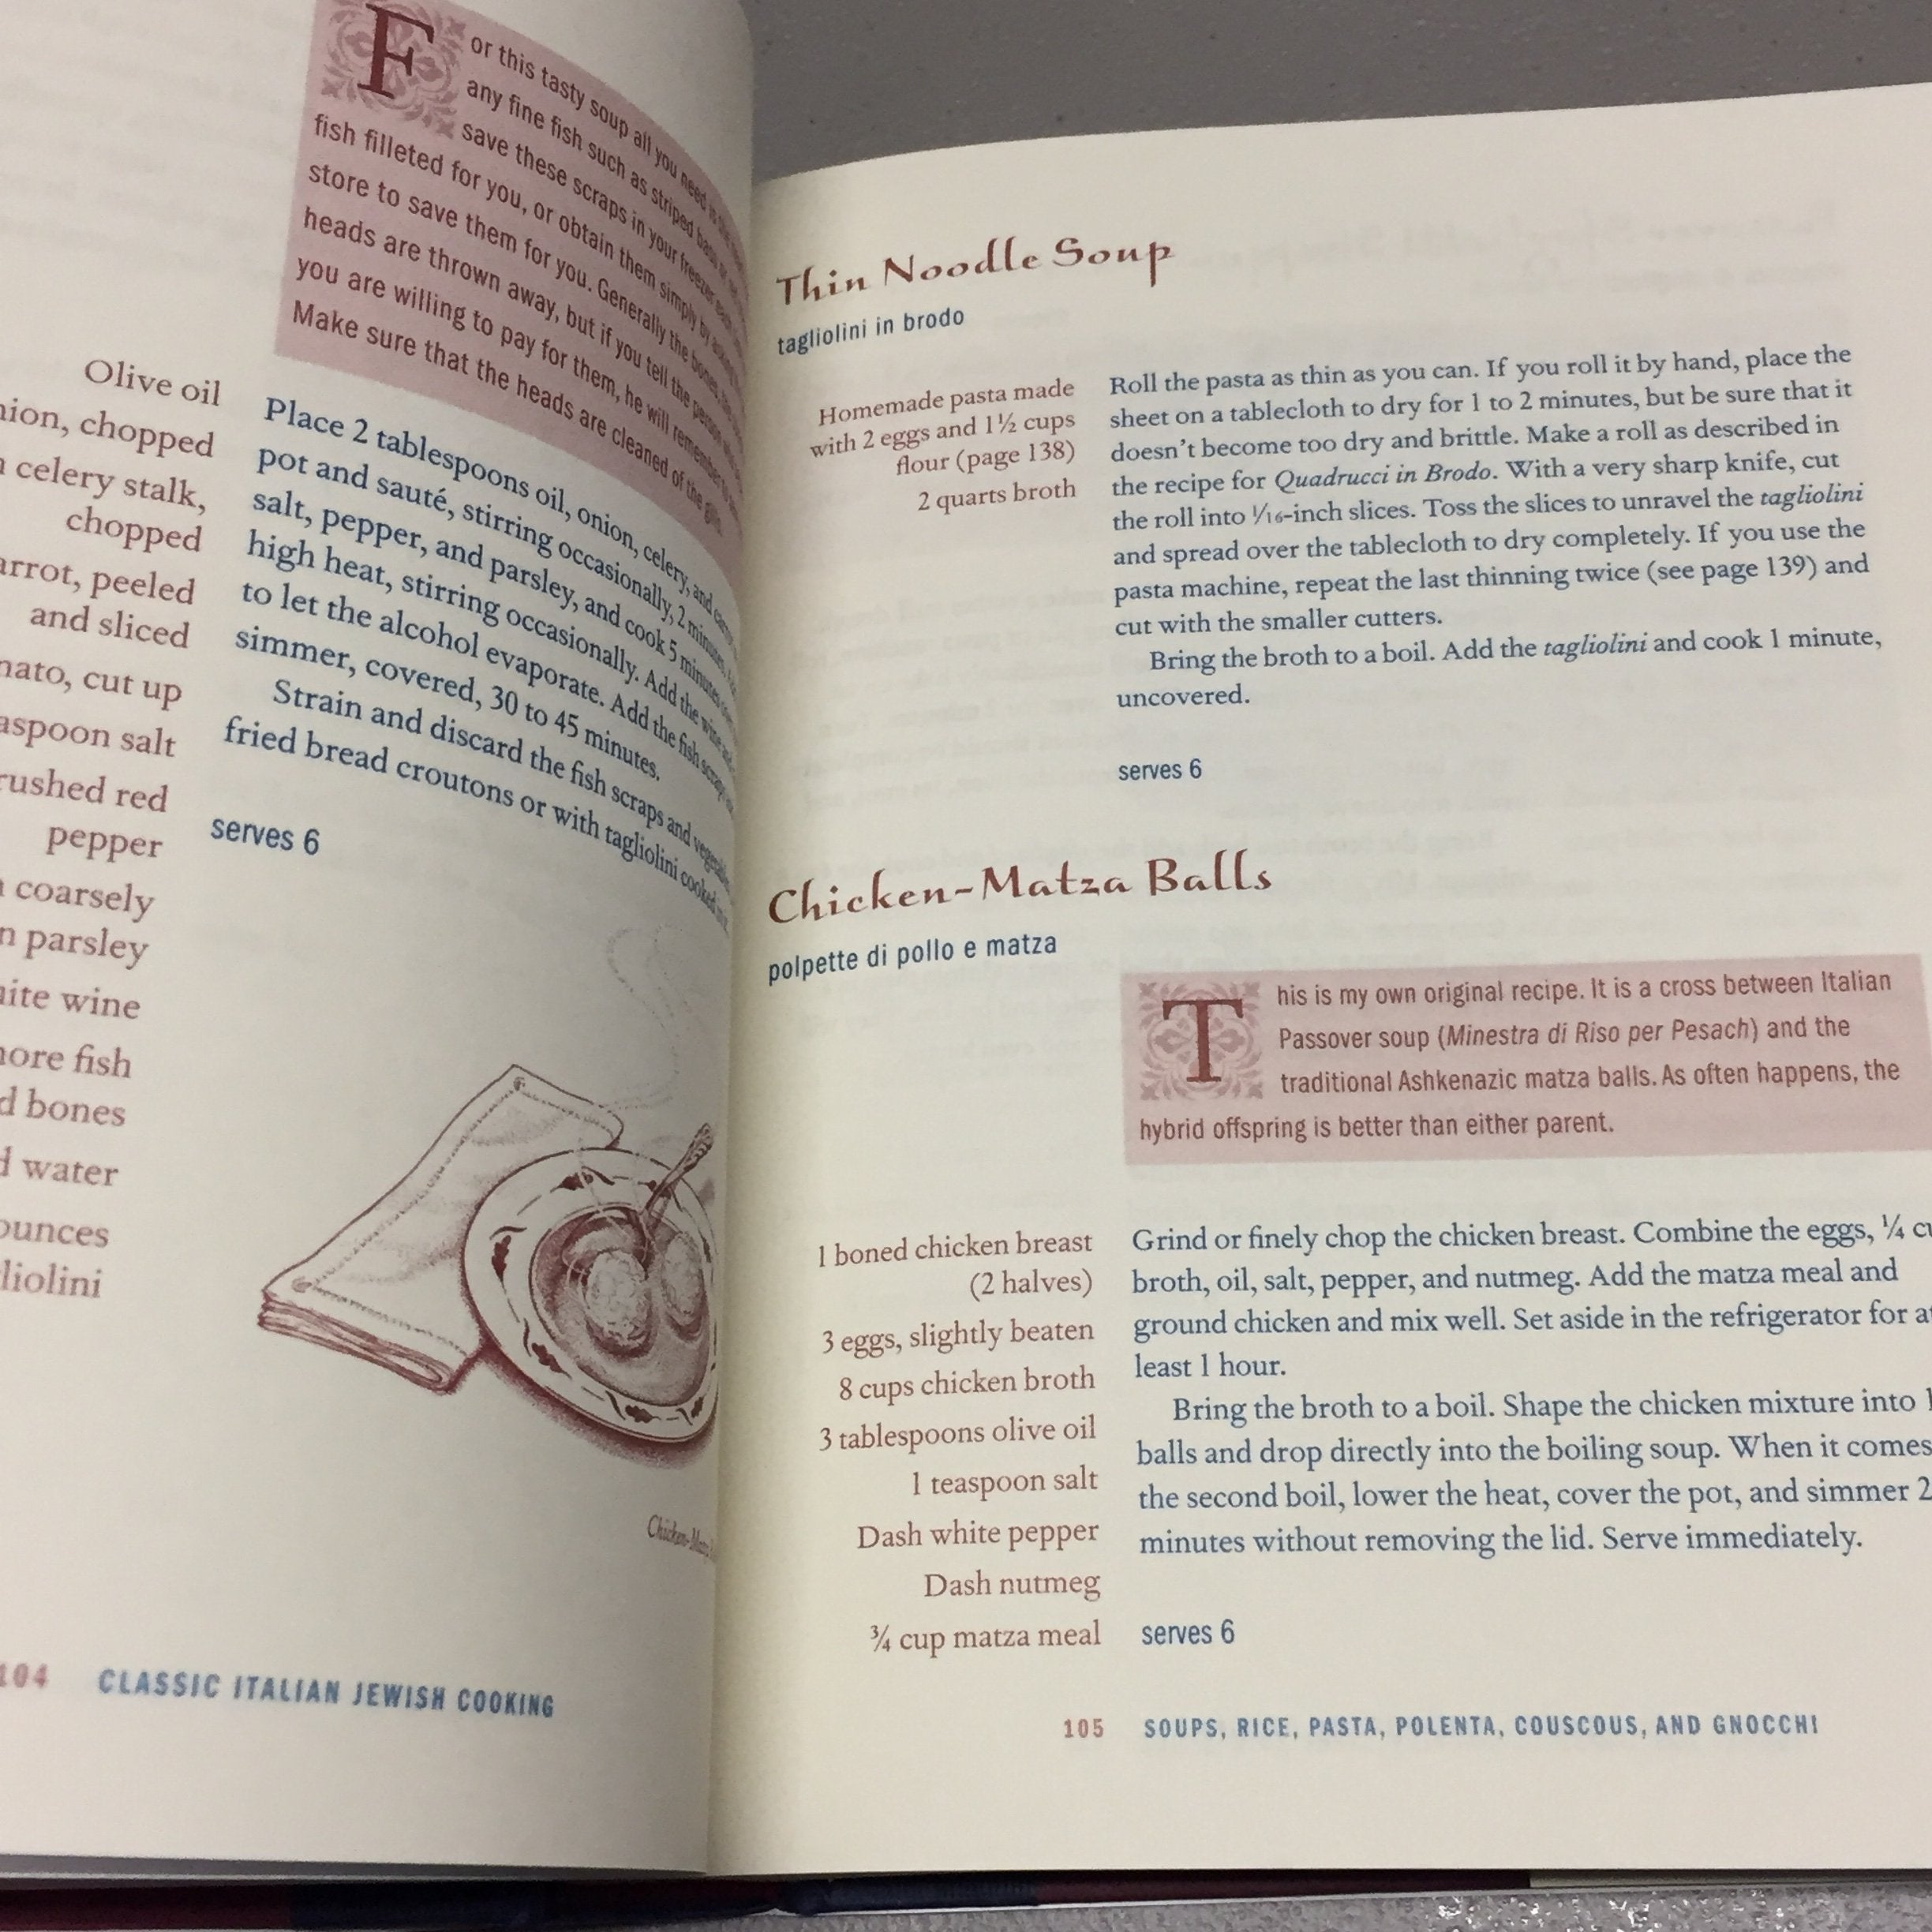 For this tasty soup all you need is the
any fine fish such as striped bass or
save these scraps in your freezer each
fish filleted for you, or obtain them simply by asking
store to save them for you. Generally the bones,
heads are thrown away, but if you tell the person
you are willing to pay for them, he will remember to
Make sure that the heads are cleaned of the gills.
Olive oil
chopped
celery stalk,
chopped
peeled
and sliced
cut up
salt
red
pepper
coarsely
parsley
wine
fish
bones
water
Place 2 tablespoons oil, onion, celery, and
pot and sauté, stirring occasionally, 2 minutes.
salt, pepper, and parsley, and cook 5 minutes
high heat, stirring occasionally. Add the wine and
to let the alcohol evaporate. Add the fish scraps
simmer, covered, 30 to 45 minutes.
Strain and discard the fish scraps and vegetables.
fried bread croutons or with tagliolini cooked
serves 6
104 CLASSIC ITALIAN JEWISH COOKING
Thin Noodle Soup
tagliolini in brodo
Homemade pasta made
with 2 eggs and 1½ cups
flour (page 138)
2 quarts broth
Roll the pasta as thin as you can. If you roll it by hand, place the
sheet on a tablecloth to dry for 1 to 2 minutes, but be sure that it
doesn't become too dry and brittle. Make a roll as described in
the recipe for Quadrucci in Brodo. With a very sharp knife, cut
the roll into 1/16-inch slices. Toss the slices to unravel the tagliolini
and spread over the tablecloth to dry completely. If you use the
pasta machine, repeat the last thinning twice (see page 139) and
cut with the smaller cutters.
Bring the broth to a boil. Add the tagliolini and cook 1 minute,
uncovered.
serves 6
Chicken-Matza Balls
polpette di pollo e matza
This is my own original recipe. It is a cross between Italian
Passover soup (Minestra di Riso per Pesach) and the
traditional Ashkenazic matza balls. As often happens, the
hybrid offspring is better than either parent.
1 boned chicken breast
(2 halves)
3 eggs, slightly beaten
8 cups chicken broth
3 tablespoons olive oil
1 teaspoon salt
Dash white pepper
Dash nutmeg
¾ cup matza meal
Grind or finely chop the chicken breast. Combine the eggs, ¼
broth, oil, salt, pepper, and nutmeg. Add the matza meal and
ground chicken and mix well. Set aside in the refrigerator for
least 1 hour.
Bring the broth to a boil. Shape the chicken mixture into
balls and drop directly into the boiling soup. When it comes
the second boil, lower the heat, cover the pot, and simmer
minutes without removing the lid. Serve immediately.
serves 6
105 SOUPS, RICE, PASTA, POLENTA, COUSCOUS, AND GNOCCHI